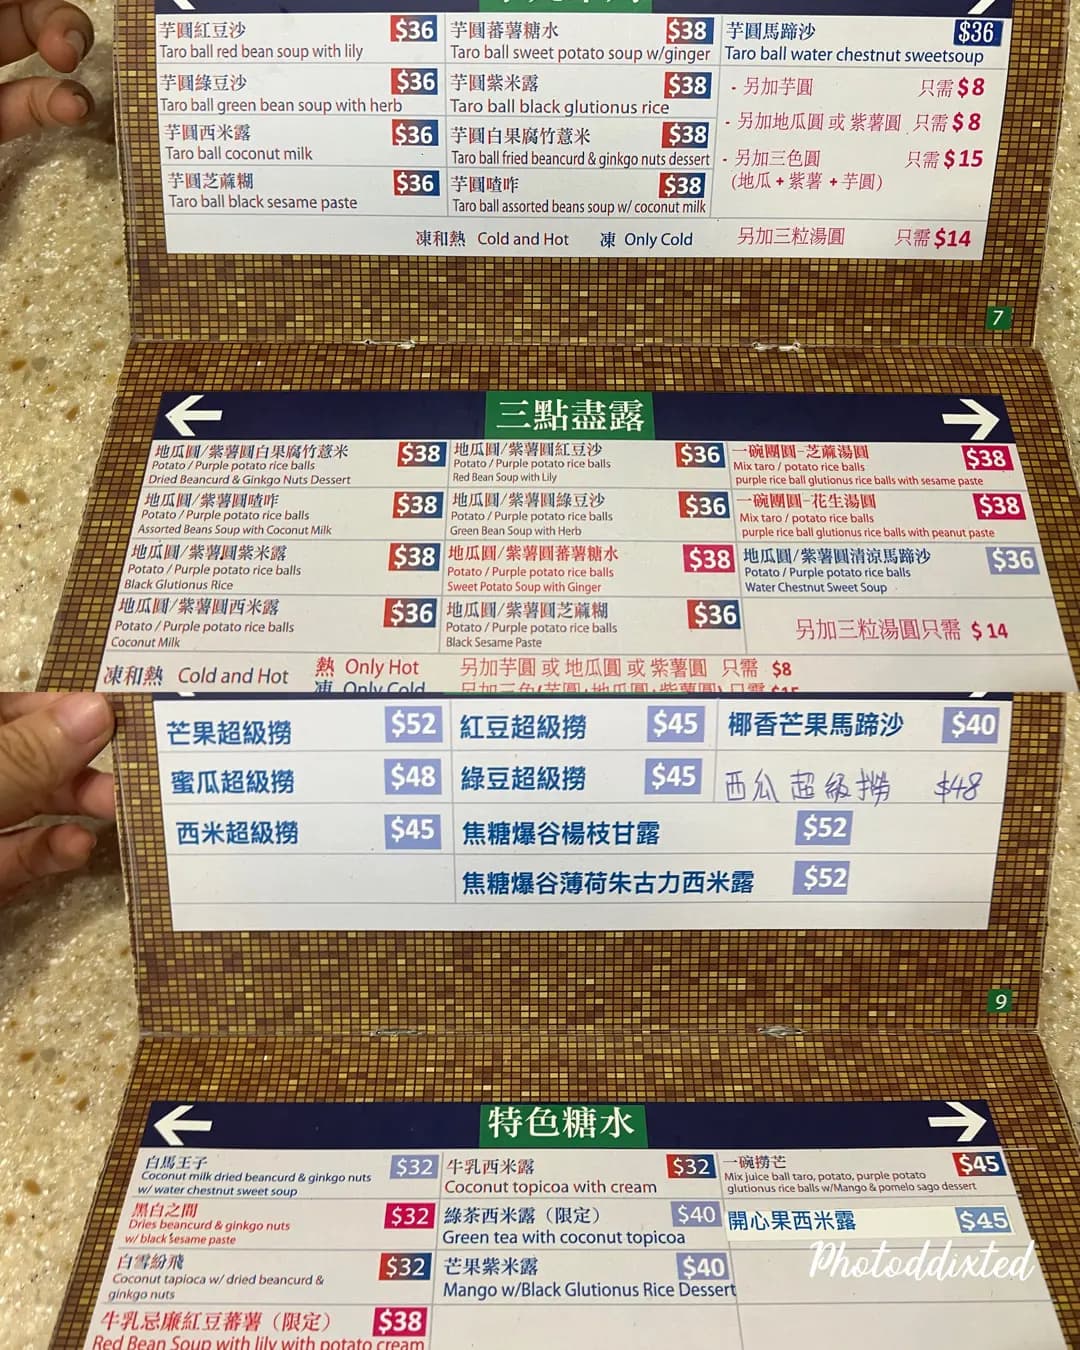 芋圓紅豆沙 $36
Taro ball red bean soup with lily
芋圓綠豆沙 $36
Taro ball green bean soup with herb
芋圓西米露 $36
Taro ball coconut milk
芋圓芝蔴糊 $36
Taro ball black sesame paste
芋圓蕃薯糖水 $38
Taro ball sweet potato soup w/ginger
芋圓紫米露 $38
Taro ball black glutionus rice
芋圓白果腐竹薏米 $38
Taro ball fried beancurd & ginkgo nuts dessert
芋圓喳咋 $38
Taro ball assorted beans soup w/ coconut milk
芋圓馬蹄沙 $36
Taro ball water chestnut sweetsoup
- 另加芋圓 只需 $8
- 另加地瓜圓 或 紫薯圓 只需 $8
- 另加三色圓 只需 $15
(地瓜 + 紫薯 + 芋圓)
凍和熱 Cold and Hot 凍 Only Cold 另加三粒湯圓 只需 $14
7
三點盡露
地瓜圓/紫薯圓白果腐竹薏米 $38
Potato / Purple potato rice balls
Dried Beancurd & Ginkgo Nuts Dessert
地瓜圓/紫薯圓喳咋 $38
Potato / Purple potato rice balls
Assorted Beans Soup with Coconut Milk
地瓜圓/紫薯圓紫米露 $38
Potato / Purple potato rice balls
Black Glutionus Rice
地瓜圓/紫薯圓西米露 $36
Potato / Purple potato rice balls
Coconut Milk
地瓜圓/紫薯圓紅豆沙 $36
Potato / Purple potato rice balls
Red Bean Soup with Lily
地瓜圓/紫薯圓綠豆沙 $36
Potato / Purple potato rice balls
Green Bean Soup with Herb
地瓜圓/紫薯圓蕃薯糖水 $38
Potato / Purple potato rice balls
Sweet Potato Soup with Ginger
地瓜圓/紫薯圓芝蔴糊 $36
Potato / Purple potato rice balls
Black Sesame Paste
一碗團圓-芝蔴湯圓 $38
Mix taro / potato rice balls
purple rice ball glutionus rice balls with sesame paste
一碗團圓-花生湯圓 $38
Mix taro / potato rice balls
purple rice ball glutionus rice balls with peanut paste
地瓜圓/紫薯圓清涼馬蹄沙 $36
Potato / Purple potato rice balls
Water Chestnut Sweet Soup
另加三粒湯圓只需 $ 14
凍和熱 Cold and Hot 熱 Only Hot 另加芋圓 或 地瓜圓 或 紫薯圓 只需 $8
凍 Only Cold 另加三色(芋圓+地瓜圓+紫薯圓) 只需 $15
芒果超級撈 $52
蜜瓜超級撈 $48
西米超級撈 $45
紅豆超級撈 $45
綠豆超級撈 $45
焦糖爆谷楊枝甘露 $52
焦糖爆谷薄荷朱古力西米露 $52
椰香芒果馬蹄沙 $40
西瓜超級撈 $48
9
特色糖水
白馬王子 $32
Coconut milk dried beancurd & ginkgo nuts
w/ water chestnut sweet soup
黑白之間 $32
Dries beancurd & ginkgo nuts
w/ black sesame paste
白雪紛飛 $32
Coconut tapioca w/ dried beancurd &
ginkgo nuts
牛乳忌廉紅豆蕃薯（限定） $38
Red Bean Soup with lily with potato cream
牛乳西米露 $32
Coconut topicoa with cream
綠茶西米露（限定） $40
Green tea with coconut topicoa
芒果紫米露 $40
Mango w/Black Glutionus Rice Dessert
一碗撈芒 $45
Mix juice ball taro, potato, purple potato
glutionus rice balls w/Mango & pomelo sago dessert
開心果西米露 $45
Photoddixted